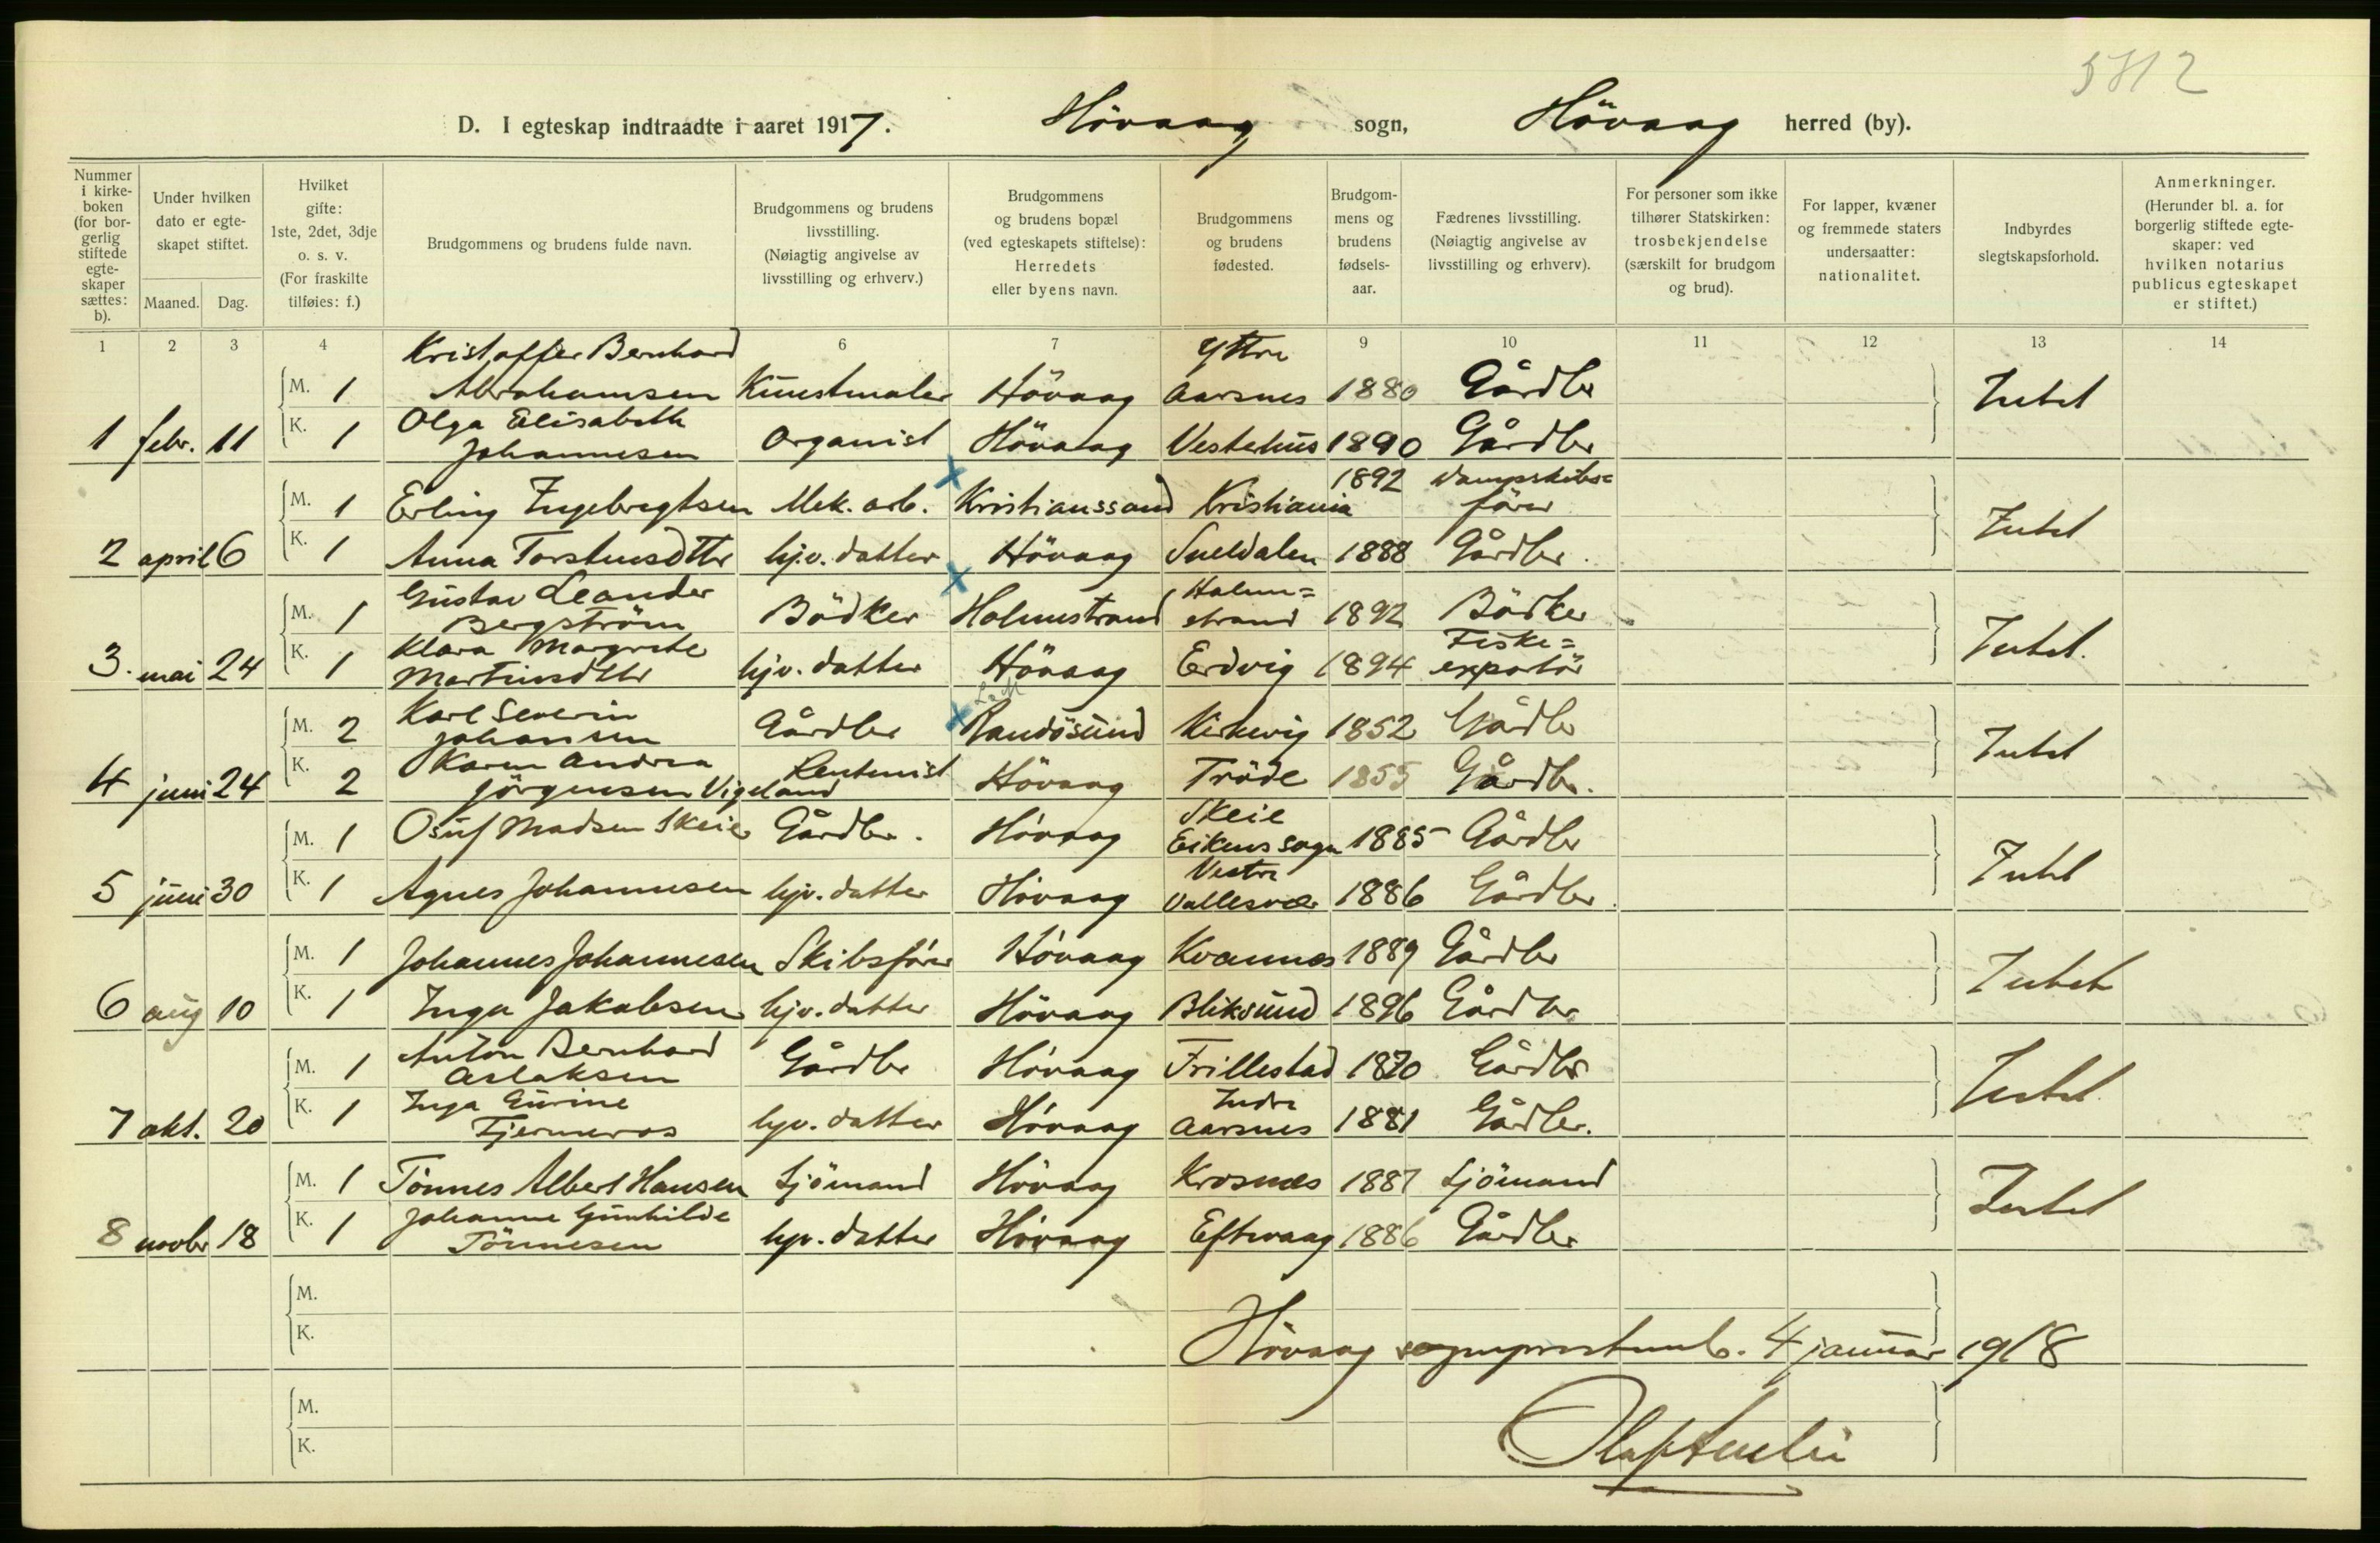 5812
D. I egteskap indtraadte i aaret 1917. Hövaag sogn, Hövaag herred (by).
Nummer i kirke-boken (for bor-gerlig stiftede egte-skaper sættes: b).
Under hvilken dato er egte-skapet stiftet.
Maaned. Dag.
Hvilket gifte: 1ste, 2det, 3dje o. s. v. (For fraskilte tilføies: f.)
Brudgommens og brudens fulde navn.
Brudgommens og brudens livsstilling. (Nøiagtig angivelse av livsstilling og erhverv.)
Brudgommens og brudens bopæl (ved egteskapets stiftelse): Herredets eller byens navn.
Brudgommens og brudens fødested.
Brudgom-mens og brudens fødsels-aar.
Fædrenes livsstilling. (Nøiagtig angivelse av livsstilling og erhverv).
For personer som ikke tilhører Statskirken: trosbekjendelse (særskilt for brudgom og brud).
For lapper, kvæner og fremmede staters undersaatter: nationalitet.
Indbyrdes slegtskapsforhold.
Anmerkninger. (Herunder bl. a. for borgerlig stiftede egte-skaper: ved hvilken notarius publicus egteskapet er stiftet.)
1 2 3 4 6 7 9 10 11 12 13 14
M. 1 Kristoffer Bernhard Abrahamsen Kunstmaler Hövaag Ytre Aarsnes 1880 Gårdbr Intet
1 febr. 11 K. 1 Olga Elisabeth Johannesen Organist Hövaag Vestehus 1890 Gårdbr
M. 1 Erling Ingebregtsen Mek. arb. x Kristianssand Kristiania 1892 Dampskibs= förer Intet
2 april 6 K. 1 Anna Torstensdtr hj.v. datter Hövaag Sneldalen 1888 Gårdbr.
M. 1 Gustav Leander Bergström Bödker x Holmestrand Holme= strand 1892 Bödker Intet.
3. mai 24 K. 1 Klara Margrete Martinsdtr hjv. datter Hövaag Erdvig 1894 Fiske= exportör
M. 2 Karl Severin Johansen Gårdbr x Randösund Kirkevig 1852 Gårdbr Intet
4 juni 24 K. 2 Karen Andrea Jörgensen Vigeland Rentenist Hövaag Tröde 1855 Gårdbr.
M. 1 Osuf Madsen Skeie Gårdbr. Hövaag Skeie Eikens sogn 1885 Gårdbr Intet
5 juni 30 K. 1 Agnes Johannesen hjv. datter Hövaag Vestre Vallesvær 1886 Gårdbr
M. 1 Johannes Johannesen Skibsförer Hövaag Kvannes 1889 Gårdbr Intet
6 aug 10 K. 1 Inga Jakobsen hjv. datter Hövaag Bliksund 1896 Gårdbr
M. 1 Anton Bernhard Aslaksen Gårdbr Hövaag Frillestad 1870 Gårdbr Intet
7 okt. 20 K. 1 Inga Gurine Tjermeros hjv. datter Hövaag Indre Aarsnes 1881 Gårdbr.
M. 1 Tönnes Albert Hansen Sjömand Hövaag Krosnes 1887 Sjömand Intet
8 novbr 18 K. 1 Johanne Gunhilde Tönnesen hjv. datter Hövaag Eftevaag 1886 Gårdbr
M.
K. Hövaag sogneprestemb. 4 januar 1918
M.
K.